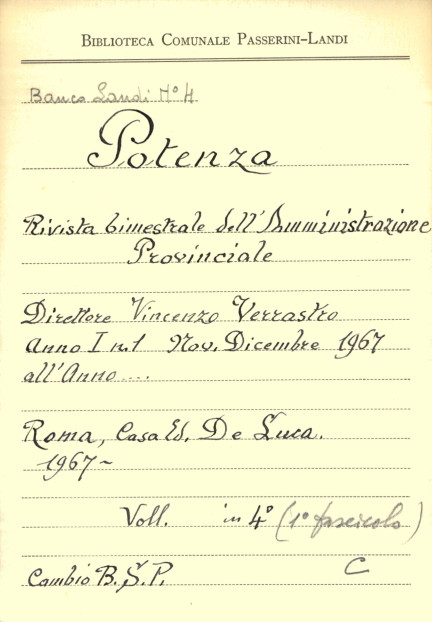 BIBLIOTECA COMUNALE PASSERINI-LANDI
Banco Landi N° 4
Potenza
Rivista bimestrale dell'Amministrazione
Provinciale
Direttore Vincenzo Verrastro
Anno I n.1 Nov. Dicembre 1967
all'Anno....
Roma, Casa Ed. De Luca.
1967-
Voll. in 4° (1° fascicolo)
Cambio B.S.P. C